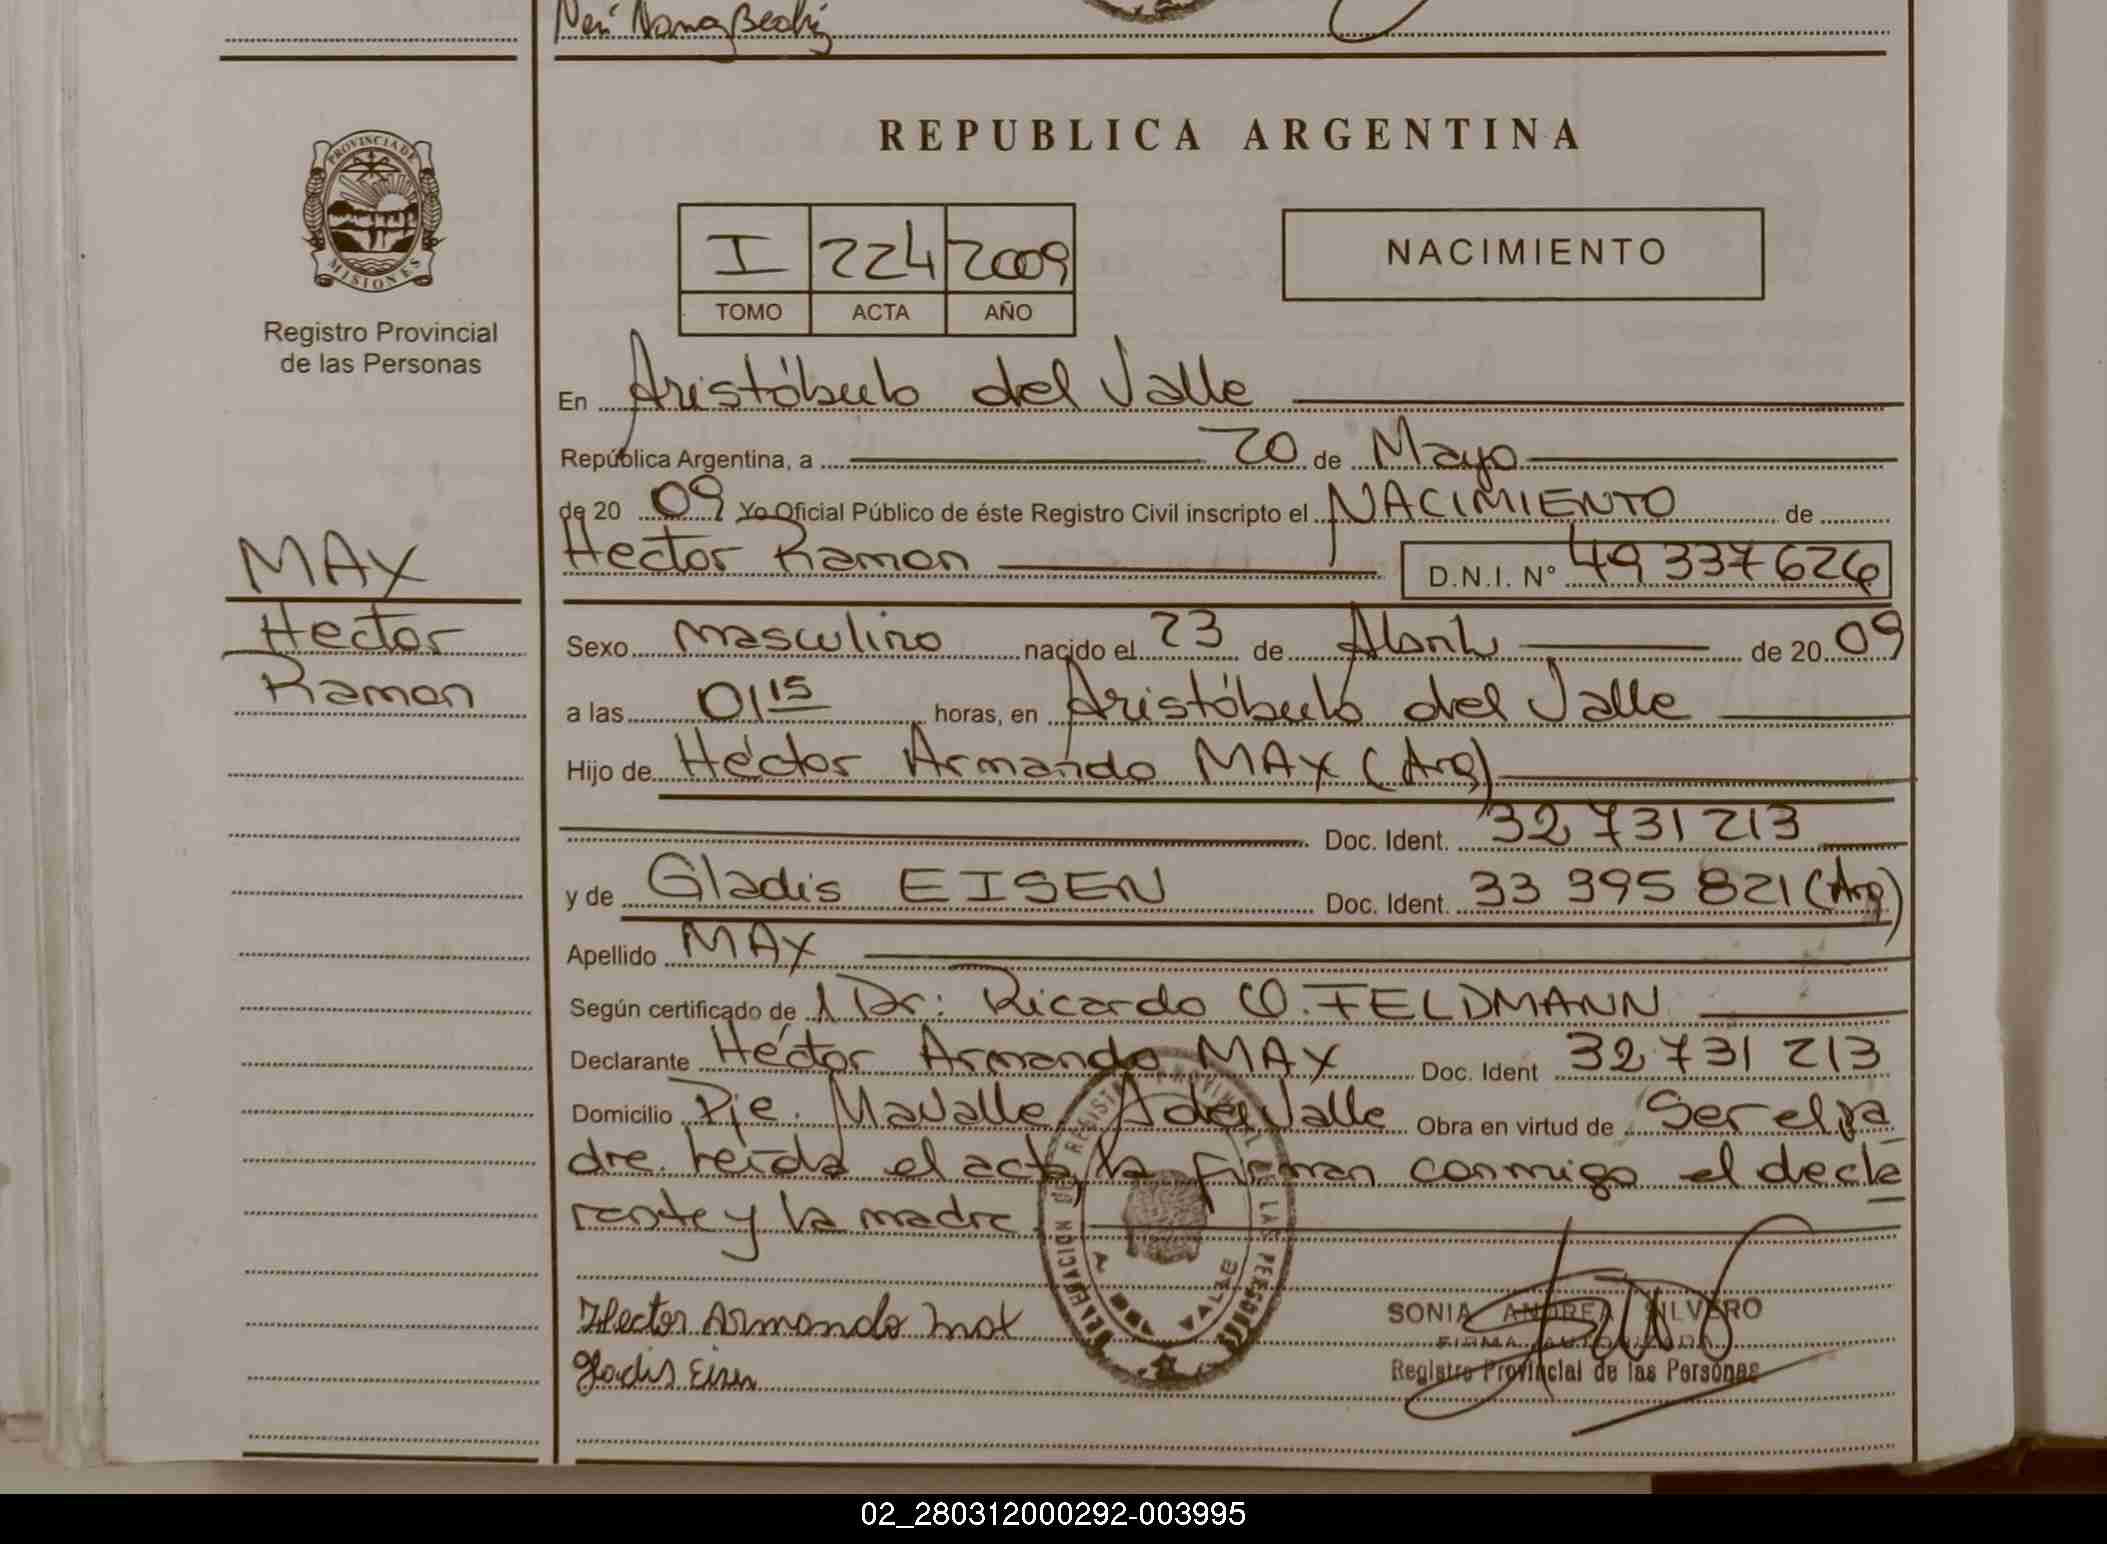 Neri Norma Beatriz
REPUBLICA ARGENTINA
PROVINCIA DE
MISIONES
Registro Provincial
de las Personas
I 224 2009
TOMO ACTA AÑO
NACIMIENTO
En Aristóbulo del Valle
República Argentina, a 20 de Mayo
de 20 09 Yo Oficial Público de éste Registro Civil inscripto el NACIMIENTO de
Hector Ramon D.N.I. Nº 49 337 626
MAX
Hector
Ramon
Sexo masculino nacido el 23 de Abril de 20 09
a las 01 15 horas, en Aristóbulo del Valle
Hijo de Héctor Armando MAX (Arg)
Doc. Ident. 32 731 213
y de Gladis EISEN Doc. Ident. 33 995 821 (Arg)
Apellido MAX
Según certificado de 1 Dr: Ricardo O. FELDMANN
Declarante Héctor Armando MAX Doc. Ident 32 731 213
Domicilio Pje. Mavalle A del Valle Obra en virtud de Ser el pa
dre. Leída el acta, la firman conmigo el decla
rante y la madre
Hector Armando Max
Gladis Eisen
SONIA ANDREA SILVERO
FIRMA AUTORIZADA
Registro Provincial de las Personas
02_280312000292-003995